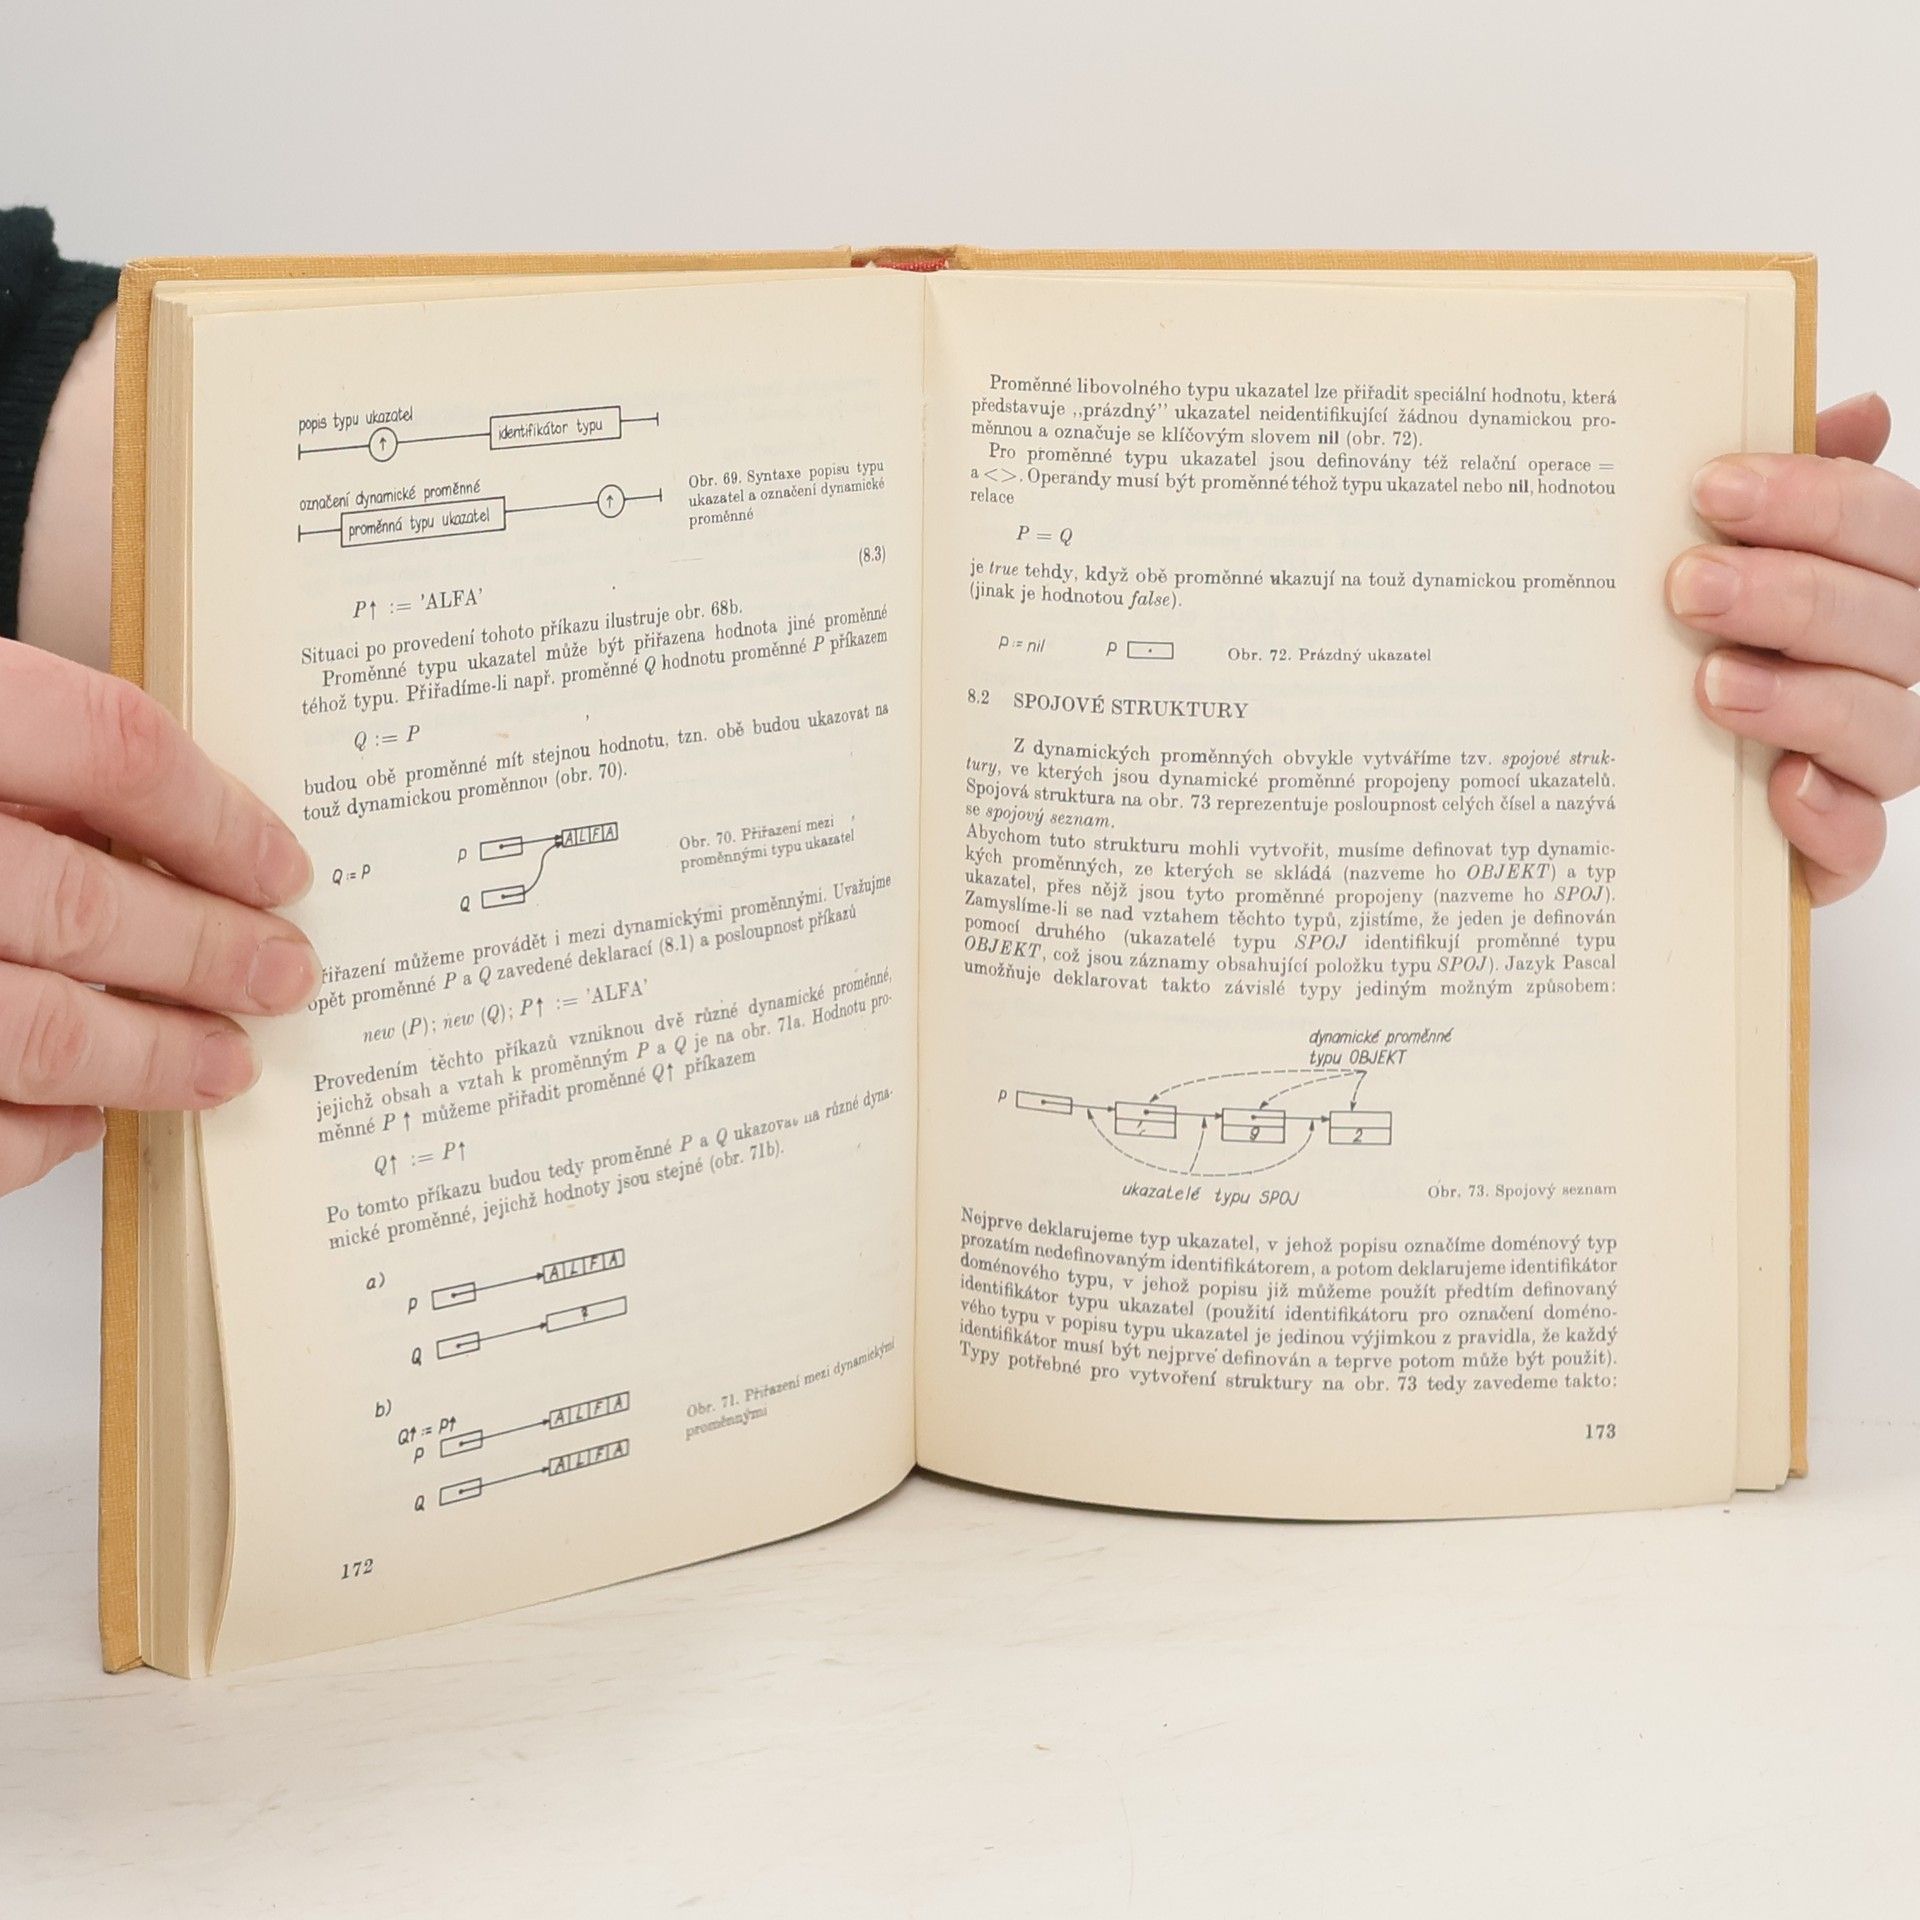 popis typu ukazatel
↑
identifikátor typu
označení dynamické proměnné
proměnná typu ukazatel
↑
Obr. 69. Syntaxe popisu typu
ukazatel a označení dynamické
proměnné
(8.3)
P↑ := 'ALFA'
Situaci po provedení tohoto příkazu ilustruje obr. 68b.
Proměnné typu ukazatel může být přiřazena hodnota jiné proměnné
téhož typu. Přiřadíme-li např. proměnné Q hodnotu proměnné P příkazem
Q := P
budou obě proměnné mít stejnou hodnotu, tzn. obě budou ukazovat na
touž dynamickou proměnnou (obr. 70).
Q := P
P
ALFA
Q
Obr. 70. Přiřazení mezi
proměnnými typu ukazatel
řiřazení můžeme provádět i mezi dynamickými proměnnými. Uvažujme
opět proměnné P a Q zavedené deklarací (8.1) a posloupnost příkazů
new (P); new (Q); P↑ := 'ALFA'
Provedením těchto příkazů vzniknou dvě různé dynamické proměnné,
jejichž obsah a vztah k proměnným P a Q je na obr. 71a. Hodnotu pro-
měnné P ↑ můžeme přiřadit proměnné Q↑ příkazem
Q↑ := P↑
Po tomto příkazu budou tedy proměnné P a Q ukazovat na různé dyna-
mické proměnné, jejichž hodnoty jsou stejné (obr. 71b).
a)
P
ALFA
Q
b)
Q↑ := P↑
P
ALFA
Q
ALFA
Obr. 71. Přiřazení mezi dynamickými
proměnnými
172
Proměnné libovolného typu ukazatel lze přiřadit speciální hodnotu, která
představuje ,,prázdný” ukazatel neidentifikující žádnou dynamickou pro-
měnnou a označuje se klíčovým slovem nil (obr. 72).
Pro proměnné typu ukazatel jsou definovány též relační operace =
a <>. Operandy musí být proměnné téhož typu ukazatel nebo nil, hodnotou
relace
P = Q
je true tehdy, když obě proměnné ukazují na touž dynamickou proměnnou
(jinak je hodnotou false).
P := nil
P
Obr. 72. Prázdný ukazatel
8.2 SPOJOVÉ STRUKTURY
Z dynamických proměnných obvykle vytváříme tzv. spojové struk-
tury, ve kterých jsou dynamické proměnné propojeny pomocí ukazatelů.
Spojová struktura na obr. 73 reprezentuje posloupnost celých čísel a nazývá
se spojový seznam.
Abychom tuto strukturu mohli vytvořit, musíme definovat typ dynamic-
kých proměnných, ze kterých se skládá (nazveme ho OBJEKT) a typ
ukazatel, přes nějž jsou tyto proměnné propojeny (nazveme ho SPOJ).
Zamyslíme-li se nad vztahem těchto typů, zjistíme, že jeden je definován
pomocí druhého (ukazatelé typu SPOJ identifikují proměnné typu
OBJEKT, což jsou záznamy obsahující položku typu SPOJ). Jazyk Pascal
umožňuje deklarovat takto závislé typy jediným možným způsobem:
dynamické proměnné
typu OBJEKT
P
9
2
ukazatelé typu SPOJ
Obr. 73. Spojový seznam
Nejprve deklarujeme typ ukazatel, v jehož popisu označíme doménový typ
prozatím nedefinovaným identifikátorem, a potom deklarujeme identifikátor
doménového typu, v jehož popisu již můžeme použít předtím definovaný
identifikátor typu ukazatel (použití identifikátoru pro označení doméno-
vého typu v popisu typu ukazatel je jedinou výjimkou z pravidla, že každý
identifikátor musí být nejprve definován a teprve potom může být použit).
Typy potřebné pro vytvoření struktury na obr. 73 tedy zavedeme takto:
173